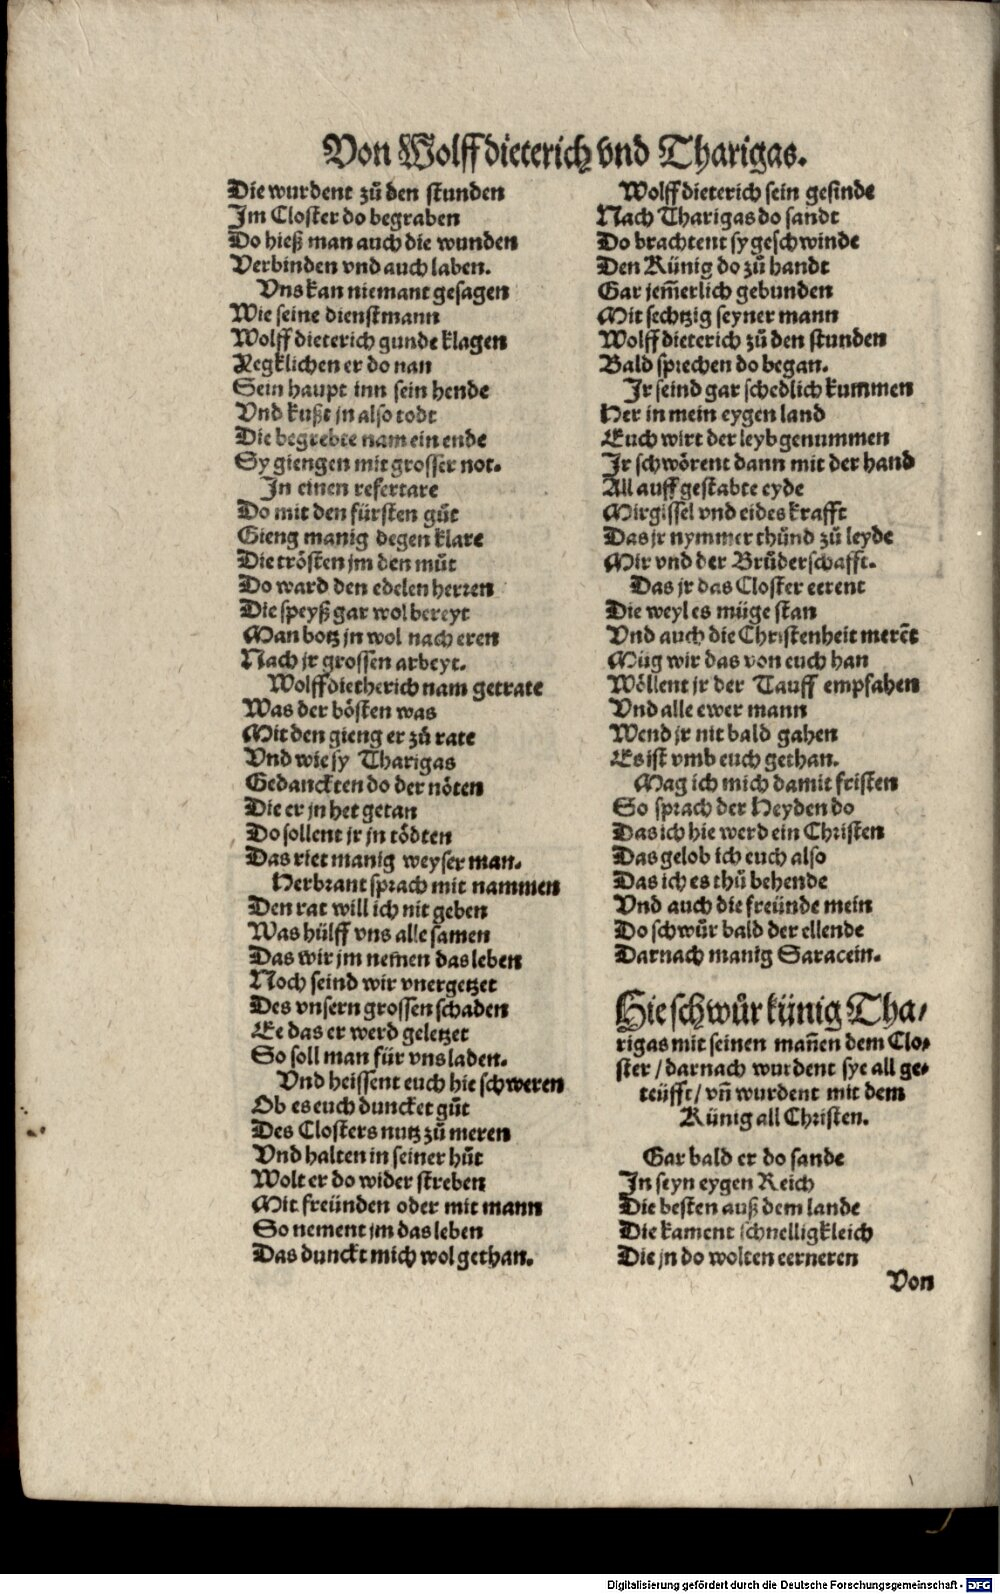 Von Wolff dieterich vnd Tharigas.
Die wurdent zů den stunden
Im Closter do begraben
Do hieß man auch die wunden
Verbinden vnd auch laben.
Vns kan niemant gesagen
Wie seine dienstmann
Wolff dieterich gunde klagen
Yegklichen er do nan
Sein haupt inn sein hende
Vnd kußt jn also todt
Die begrebte nam ein ende
Sy giengen mit grosser not.
In einen refertare
Do mit den fürsten gůt
Gieng manig degen klare
Die trösten jm den můt
Do ward den edelen herren
Die speyß gar wol bereyt
Man botz jn wol nach eren
Nach jr grossen arbeyt.
Wolff dietherich nam getrate
Was der bösten was
Mit den gieng er zů rate
Vnd wie sy Tharigas
Gedanckten do der nöten
Die er jn het getan
Do sollent jr jn tödten
Das riet manig weyser man.
Herbrant sprach mit nammen
Den rat will ich nit geben
Was hülff vns alle samen
Das wir jm nemen das leben
Noch seind wir vnergetzet
Des vnsern grossen schaden
Ee das er werd geletzet
So soll man für vns laden.
Vnd heissent euch hie schweren
Ob es euch duncket gůt
Des Closters nutz zů meren
Vnd halten in seiner hůt
Wolt er do wider streben
Mit freünden oder mit mann
So nement jm das leben
Das dunckt mich wol gethan.
Wolff dieterich sein gesinde
Nach Tharigas do sandt
Do brachtent sy geschwinde
Den Künig do zů handt
Gar jem̃erlich gebunden
Mit sechtzig seyner mann
Wolff dieterich zů den stunden
Bald sprechen do began.
Ir seind gar schedlich kummen
Her in mein eygen land
Euch wirt der leyb genummen
Ir schwörent dann mit der hand
All auff gestabte eyde
Mir gissel vnd eides krafft
Das jr nymmer thünd zů leyde
Mir vnd der Brůderschafft.
Das jr das Closter eerent
Die weyl es müge stan
Vnd auch die Christenheit merẽt
Müg wir das von euch han
Wöllent jr der Tauff empfahen
Vnd alle ewer mann
Wend jr nit bald gahen
Es ist vmb euch gethan.
Mag ich mich damit fristen
So sprach der Heyden do
Das ich hie werd ein Christen
Das gelob ich euch also
Das ich es thů behende
Vnd auch die freünde mein
Do schwůr bald der ellende
Darnach manig Saracein.
Hie schwůr künig Tha-
rigas mit seinen mañen dem Clo-
ster / darnach wurdent sye all ge-
teüfft / vñ wurdent mit dem
Künig all Christen.
Gar bald er do sande
In seyn eygen Reich
Die besten auß dem lande
Die kament schnelligkleich
Die jn do wolten eerneren
Von
Digitalisierung gefördert durch die Deutsche Forschungsgemeinschaft - DFG